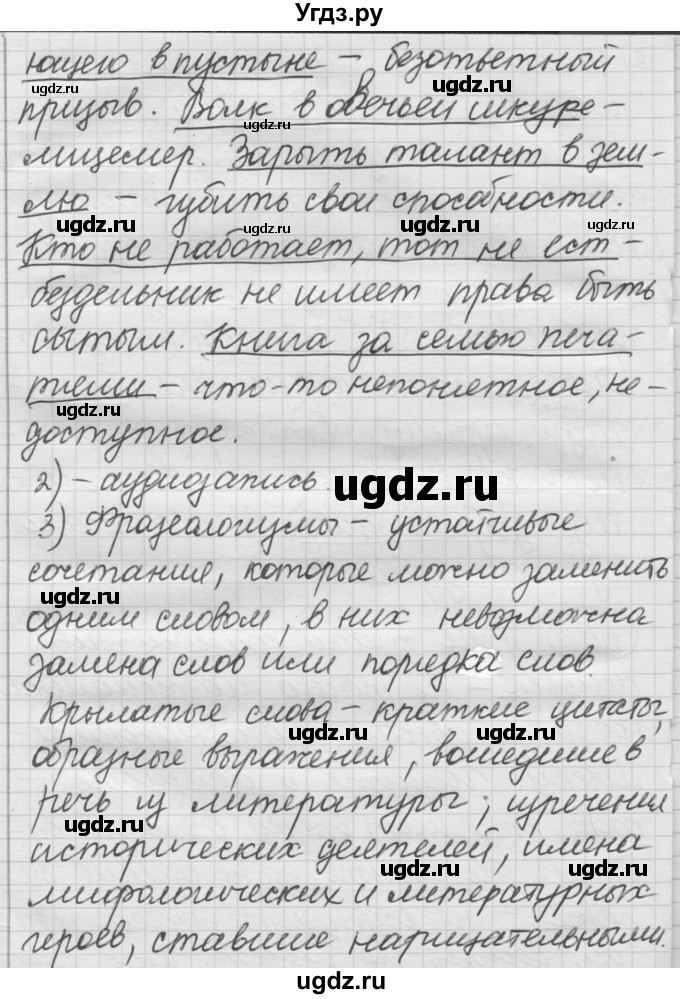 Угдз.ру
ющего в пустыне – безответный
ugdz.ru ugdz.ru
призыв. Волк в овечьей шкуре –
ugdz.ru
лицемер. Зарыть талант в зем-
лю – губить свои способности.
ugdz.ru ugdz.ru
Кто не работает, тот не ест –
бездельник не имеет права быть
ugdz.ru ugdz.ru
сытым. Книга за семью печа-
тями – что-то непонятное, не-
ugdz.ru
доступное.
2) – аудиозапись.
ugdz.ru
3) Фразеологизмы – устойчивые
сочетания, которые можно заменить
ugdz.ru
одним словом, в них невозможна
замена слов или порядка слов.
Крылатые слова – краткие цитаты,
ugdz.ru ugdz.ru
образные выражения, вошедшие в
речь из литературы; изречения
ugdz.ru
исторических деятелей, имена
мифологических и литературных
героев, ставшие нарицательными.
ugdz.ru